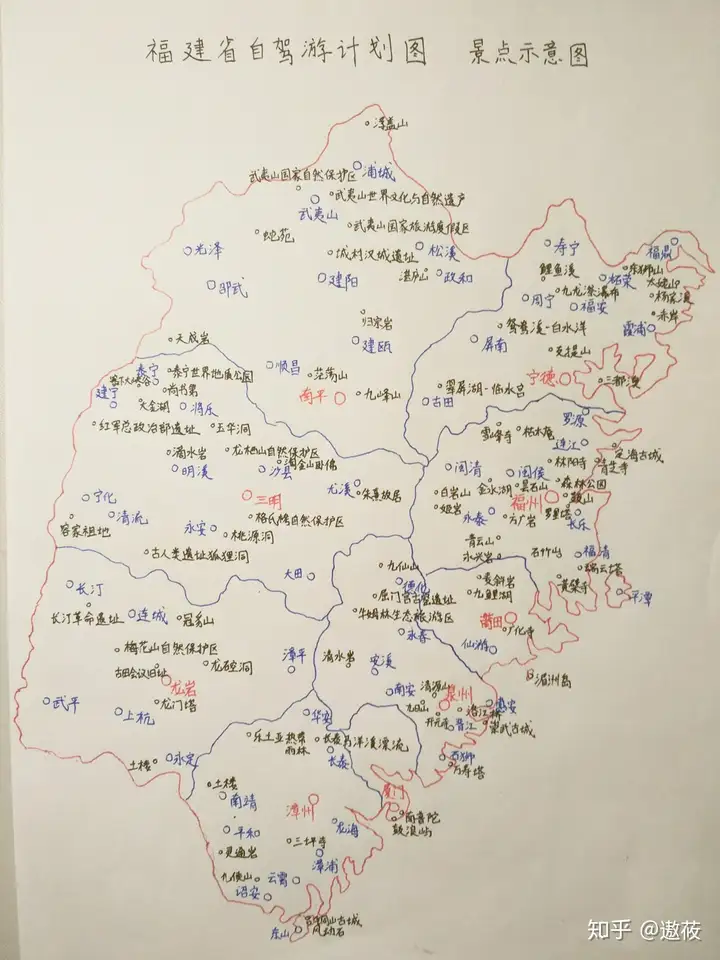 福建省自驾游计划图 景点示意图
浮盖山
武夷山国家自然保护区
浦城
武夷山世界文化与自然遗产
武夷山
武夷山国家旅游度假区
蛇苑
光泽
城村汉城遗址
松溪
寿宁
福鼎
邵武
建阳
湛庐山
政和
鲤鱼溪
柘荣
东狮山
太姥山
九龙漈瀑布
杨家溪
周宁
福安
赤岸
归宗岩
鸳鸯溪-白水洋
霞浦
天成岩
建瓯
屏南
支提山
泰宁
泰宁世界地质公园
顺昌
茫荡山
宁德
三都澳
尚书第
建宁
南平
九峰山
翠屏湖-临水宫
大金湖
将乐
古田
罗源
红军总政治部遗址
玉华洞
雪峰寺
枯木庵
连江
定海古城
滴水岩
龙栖山自然保护区
淘金山卧佛
明溪
沙县
闽清
闽侯
林阳寺
青芝寺
尤溪
朱熹故居
白岩山
金水湖
昙石山
森林公园
宁化
三明
福州
鼓山
清流
格氏栲自然保护区
姬岩
永泰
方广岩
罗星塔
长乐
客家祖地
永安
桃源洞
青云山
古人类遗址狐狸洞
永兴岩
石竹山
福清
瑞云塔
大田
九仙山
黄檗寺
平潭
长汀
德化
麦斜岩
屈斗宫古窑遗址
九鲤湖
长汀革命遗址
连城
冠豸山
牛姆林生态旅游区
莆田
广化寺
永春
仙游
梅花山自然保护区
漳平
清水岩
安溪
湄洲岛
古田会议旧址
龙硿洞
龙岩
南安
清源山
泉州
惠安
武平
上杭
龙门塔
九日山
洛江桥
华安
开元寺
晋江
崇武古城
乐土亚热带
雨林
长泰马洋溪漂流
土楼
永定
长泰
石狮
万寿塔
土楼
南靖
漳州
厦门
南普陀
鼓浪屿
平和
龙海
三坪寺
灵通岩
漳浦
九侯山
云霄
诏安
东山
风动石
知乎 @遨莜